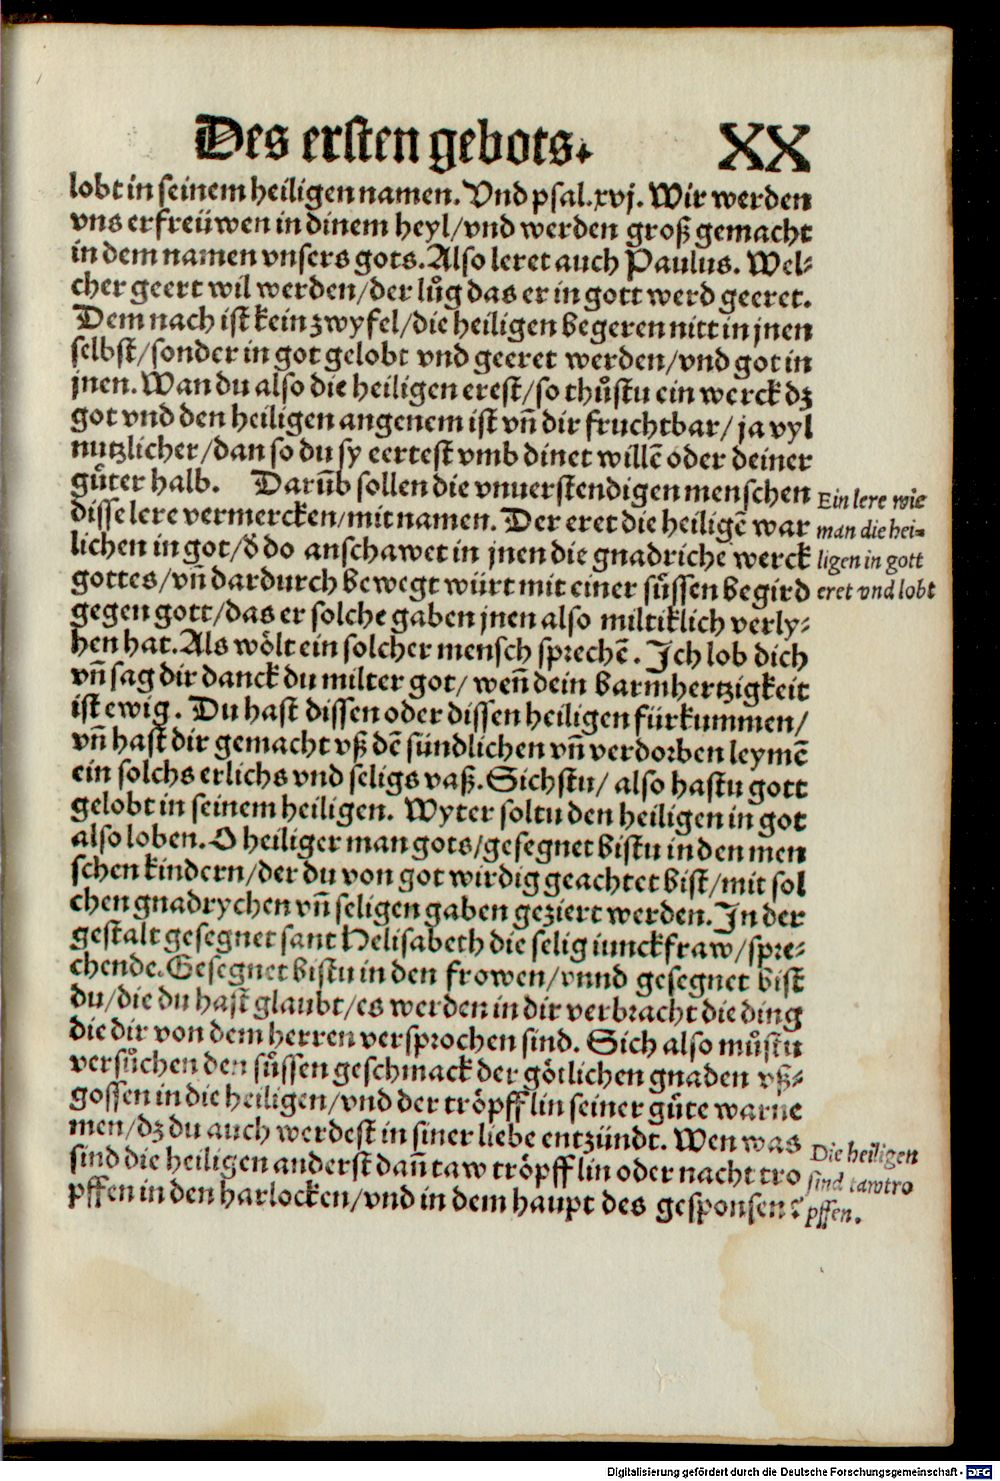 Des ersten gebots. XX
lobt in seinem heiligen namen. Vnd psal. xvj. Wir werden
vns erfreüwen in dinem heyl/vnd werden groß gemacht
in dem namen vnsers gots. Also leret auch Paulus. Wel-
cher geert wil werden/der lůg das er in gott werd geeret.
Dem nach ist kein zwyfel/die heiligen begeren nitt in jnen
selbst/sonder in got gelobt vnd geeret werden/vnd got in
jnen. Wan du also die heiligen erest/so thůstu ein werck dz
got vnd den heiligen angenem ist vñ dir fruchtbar/ ja vyl
nutzlicher/dan so du sy eertest vmb dinet willē oder deiner
gůter halb. Darũb sollen die vnuerstendigen menschen
disse lere vermercken/mit namen. Der eret die heiligē war
lichen in got/d̕ do anschawet in jnen die gnadriche werck
gottes/vñ dardurch bewegt würt mit einer sůssen begird
gegen gott/das er solche gaben jnen also miltiklich verly-
hen hat. Als wölt ein solcher mensch sprechē. Ich lob dich
vñ sag dir danck du milter got/ weñ dein barmhertzigkeit
ist ewig. Du hast dissen oder dissen heiligen fürkummen/
vñ hast dir gemacht vß dē sündlichen vñ verdorben leymē
ein solchs erlichs vnd seligs vaß. Sichstu/ also hastu gott
gelobt in seinem heiligen. Wyter soltu den heiligen in got
also loben. O heiliger man gots/gesegnet bistu in den men
schen kindern/der du von got wirdig geachtet bist/mit sol
chen gnadrychen vñ seligen gaben geziert werden. In der
gestalt gesegnet sant Helisabeth die selig iunckfraw/spre-
chende. Gesegnet bistu in den frowen/vnnd gesegnet bist
du/die du hast glaubt/es werden in dir verbracht die ding
die dir von dem herren versprochen sind. Sich also můstu
versůchen den sůssen geschmack der götlichen gnaden vß-
gossen in die heiligen/vnd der tröpfflin seiner gůte warne
men/dz du auch werdest in siner liebe entzündt. Wen was
sind die heiligen anderst dañ taw tröpfflin oder nacht tro
pffen in den harlocken/vnd in dem haupt des gesponsen?
Ein lere wie
man die hei-
ligen in gott
eret vnd lobt
Die heiligen
sind tawtro
pffen.
Digitalisierung gefördert durch die Deutsche Forschungsgemeinschaft - DFG